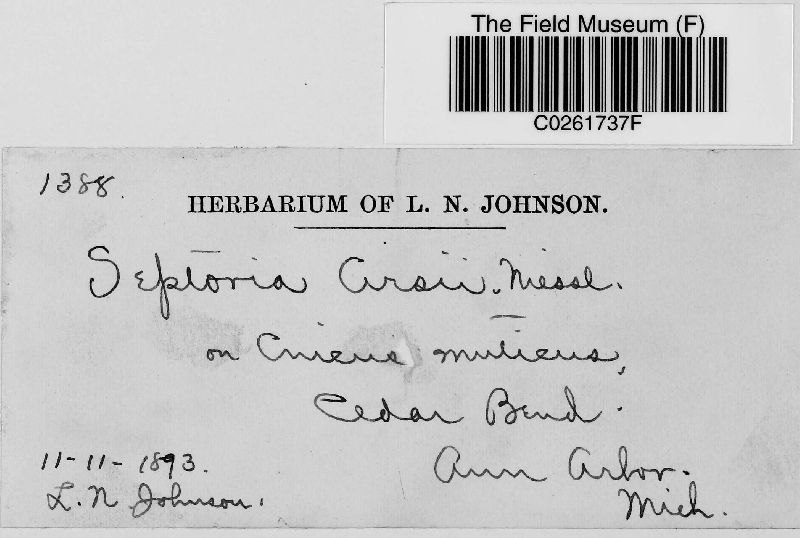 The Field Museum (F)
C0261737F
1388.
HERBARIUM OF L. N. JOHNSON.
Septoria Cirsii. Niessl.
on Cnicus muticus,
Cedar Bend.
11-11-1893.
Ann Arbor.
L. N. Johnson.
Mich.